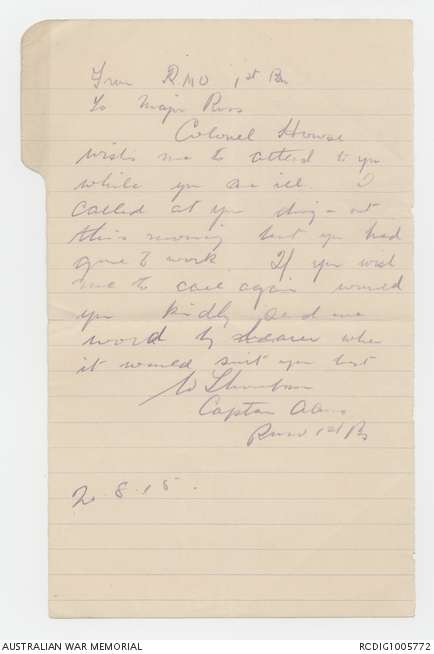 From RMO 1st Bn
To Major Ross
Colonel Howse
wishes me to attend to you
while you are ill. I
called at you dug-out
this morning but you had
gone to work. If you wish
me to call again would
you kindly send me
word by bearer when
it would suit you best
W
Captain AAMC
RMO 1st Bn
2. 8. 15.
AUSTRALIAN WAR MEMORIAL
RCDIG1005772